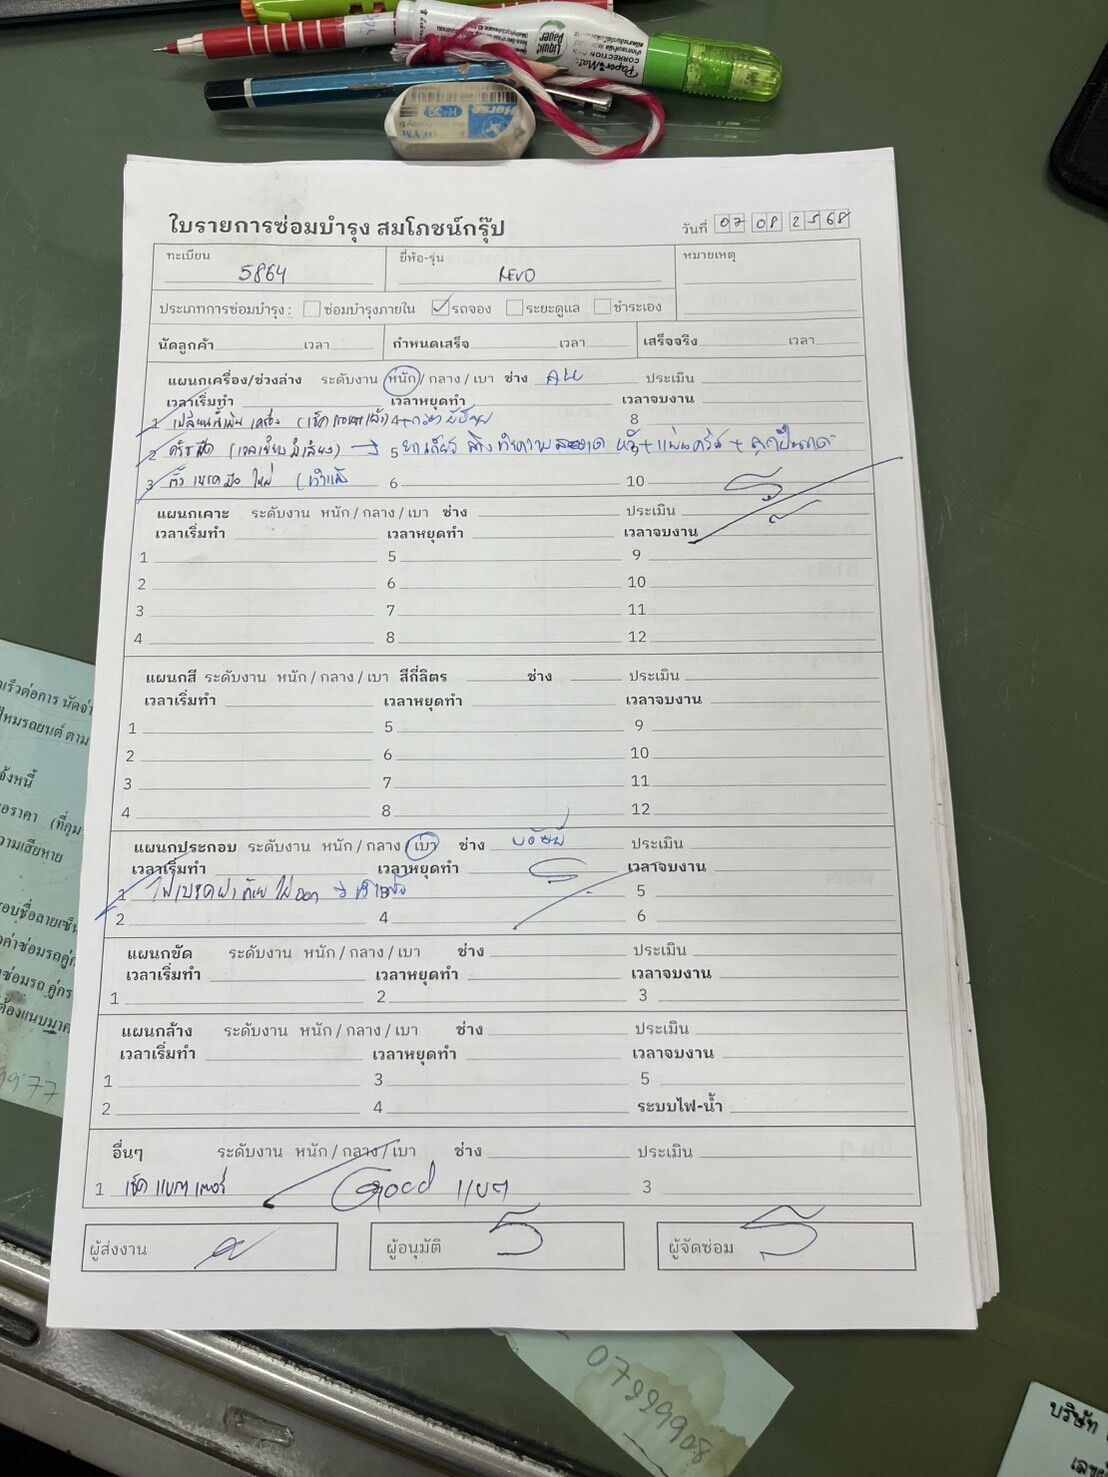 Liquid Paper
CORRECTION PEN
Paper Mate
Horse
H-30
ใบรายการซ่อมบำรุง สมโภชน์กรุ๊ป
วันที่ 07 08 2568
ทะเบียน 5864 ยี่ห้อ-รุ่น REVO หมายเหตุ
ประเภทการซ่อมบำรุง : ซ่อมบำรุงภายใน ✓ รถจอง ระยะดูแล ชำระเอง
นัดลูกค้า เวลา กำหนดเสร็จ เวลา เสร็จจริง เวลา
แผนกเครื่อง/ช่วงล่าง ระดับงาน หนัก / กลาง / เบา ช่าง ประเมิน
เวลาเริ่มทำ เวลาหยุดทำ เวลาจบงาน
1 เปลี่ยนน้ำมันเครื่อง 4 8
2 ครัชลื่น (เวลาเหยียบมีเสียง) → 5 ยกเกียร์ ล้างทำความสะอาด หวี+แผ่นครัช + ลูกปืนกด
3 ตั้งเบรคมือ ใหม่ (ทำแล้ว 6 10
แผนกเคาะ ระดับงาน หนัก / กลาง / เบา ช่าง ประเมิน
เวลาเริ่มทำ เวลาหยุดทำ เวลาจบงาน
1 5 9
2 6 10
3 7 11
4 8 12
แผนกสี ระดับงาน หนัก / กลาง / เบา สีกี่ลิตร ช่าง ประเมิน
เวลาเริ่มทำ เวลาหยุดทำ เวลาจบงาน
1 5 9
2 6 10
3 7 11
4 8 12
แผนกประกอบ ระดับงาน หนัก / กลาง / เบา ช่าง ประเมิน
เวลาเริ่มทำ เวลาหยุดทำ เวลาจบงาน
1 ไฟเบรคฝาท้าย ไม่ออก 5
2 4 6
แผนกขัด ระดับงาน หนัก / กลาง / เบา ช่าง ประเมิน
เวลาเริ่มทำ เวลาหยุดทำ เวลาจบงาน
1 2 3
แผนกล้าง ระดับงาน หนัก / กลาง / เบา ช่าง ประเมิน
เวลาเริ่มทำ เวลาหยุดทำ เวลาจบงาน
1 3 5
2 4 ระบบไฟ-น้ำ
อื่นๆ ระดับงาน หนัก / กลาง / เบา ช่าง ประเมิน
1 เช็ค แบตเตอรี่ Good แบต 3
ผู้ส่งงาน ผู้อนุมัติ ผู้จัดซ่อม
บริษัท